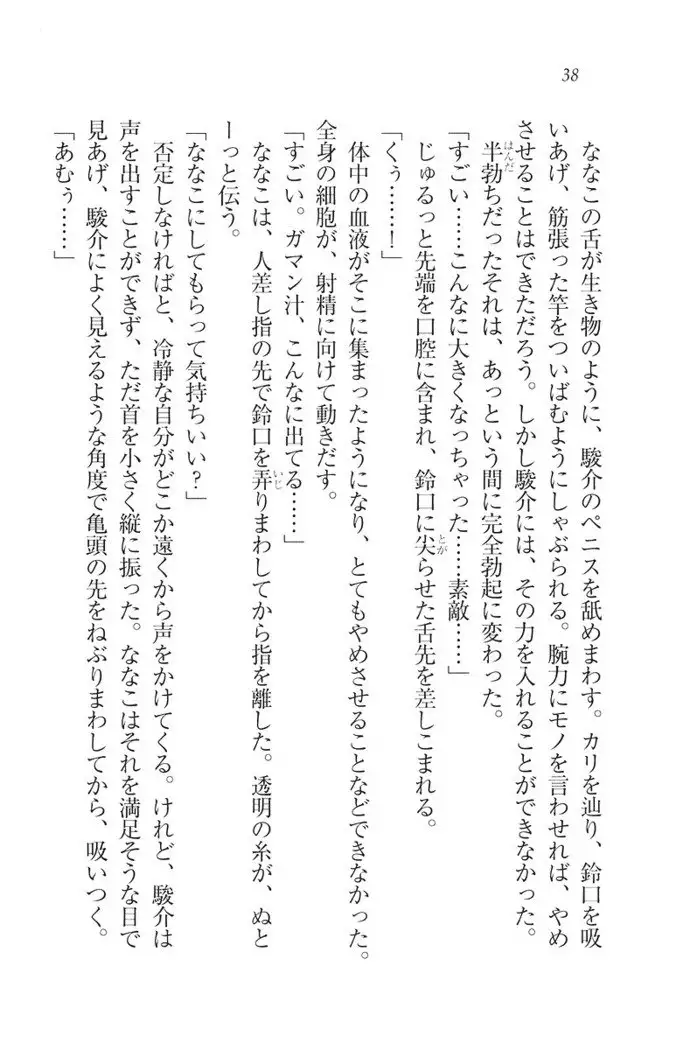 38
ななこの舌が生き物のように、駿介のペニスを舐めまわす。カリを辿り、鈴口を吸
いあげ、筋張った竿をついばむようにしゃぶられる。腕力にモノを言わせれば、やめ
させることはできただろう。しかし駿介には、その力を入れることができなかった。
半勃ちだったそれは、あっという間に完全勃起に変わった。
はんだ
「すごい……こんなに大きくなっちゃった……素敵……」
じゅるっと先端を口腔に含まれ、鈴口に尖らせた舌先を差しこまれる。
とが
「くぅ……！」
体中の血液がそこに集まったようになり、とてもやめさせることなどできなかった。
全身の細胞が、射精に向けて動きだす。
「すごい。ガマン汁、こんなに出てる……」
ななこは、人差し指の先で鈴口を弄りまわしてから指を離した。透明の糸が、ぬと
いじ
ーっと伝う。
「ななこにしてもらって気持ちいい？」
否定しなければと、冷静な自分がどこか遠くから声をかけてくる。けれど、駿介は
声を出すことができず、ただ首を小さく縦に振った。ななこはそれを満足そうな目で
見あげ、駿介によく見えるような角度で亀頭の先をねぶりまわしてから、吸いつく。
「あむぅ……」